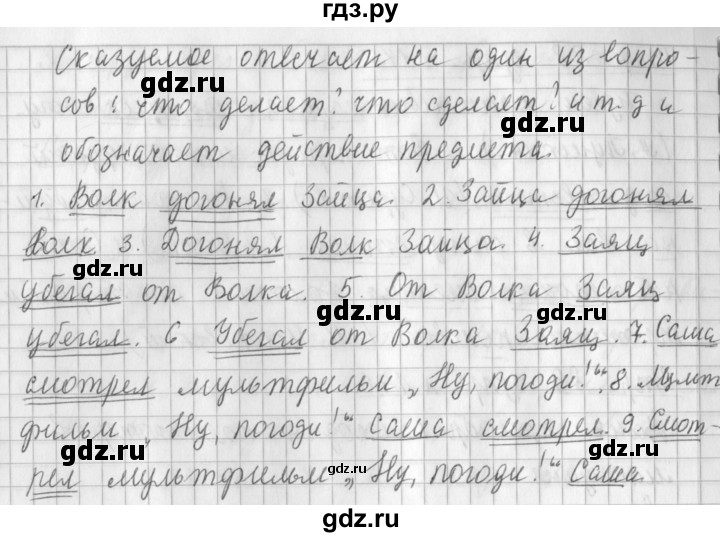 гдз.ру
Сказуемое отвечает на один из вопро-
сов: что делает? что сделает? и т.д и
обозначает действие предмета.
1. Волк догонял Зайца. 2. Зайца догонял
Волк 3. Догонял Волк Зайца. 4. Заяц
убегал от Волка. 5. От Волка Заяц
убегал. 6 Убегал от Волка Заяц. 7. Саша
смотрел мультфильм „Ну, погоди!“. 8. Мульт
фильм „Ну, погоди!“ Саша смотрел. 9. Смот-
рел мультфильм „Ну, погоди!“ Саша
gdz.ru
gdz.ru
gdz.ru
gdz.ru
gdz.ru
gdz.ru
gdz.ru
gdz.ru
gdz.ru
gdz.ru
gdz.ru
gdz.ru
gdz.ru